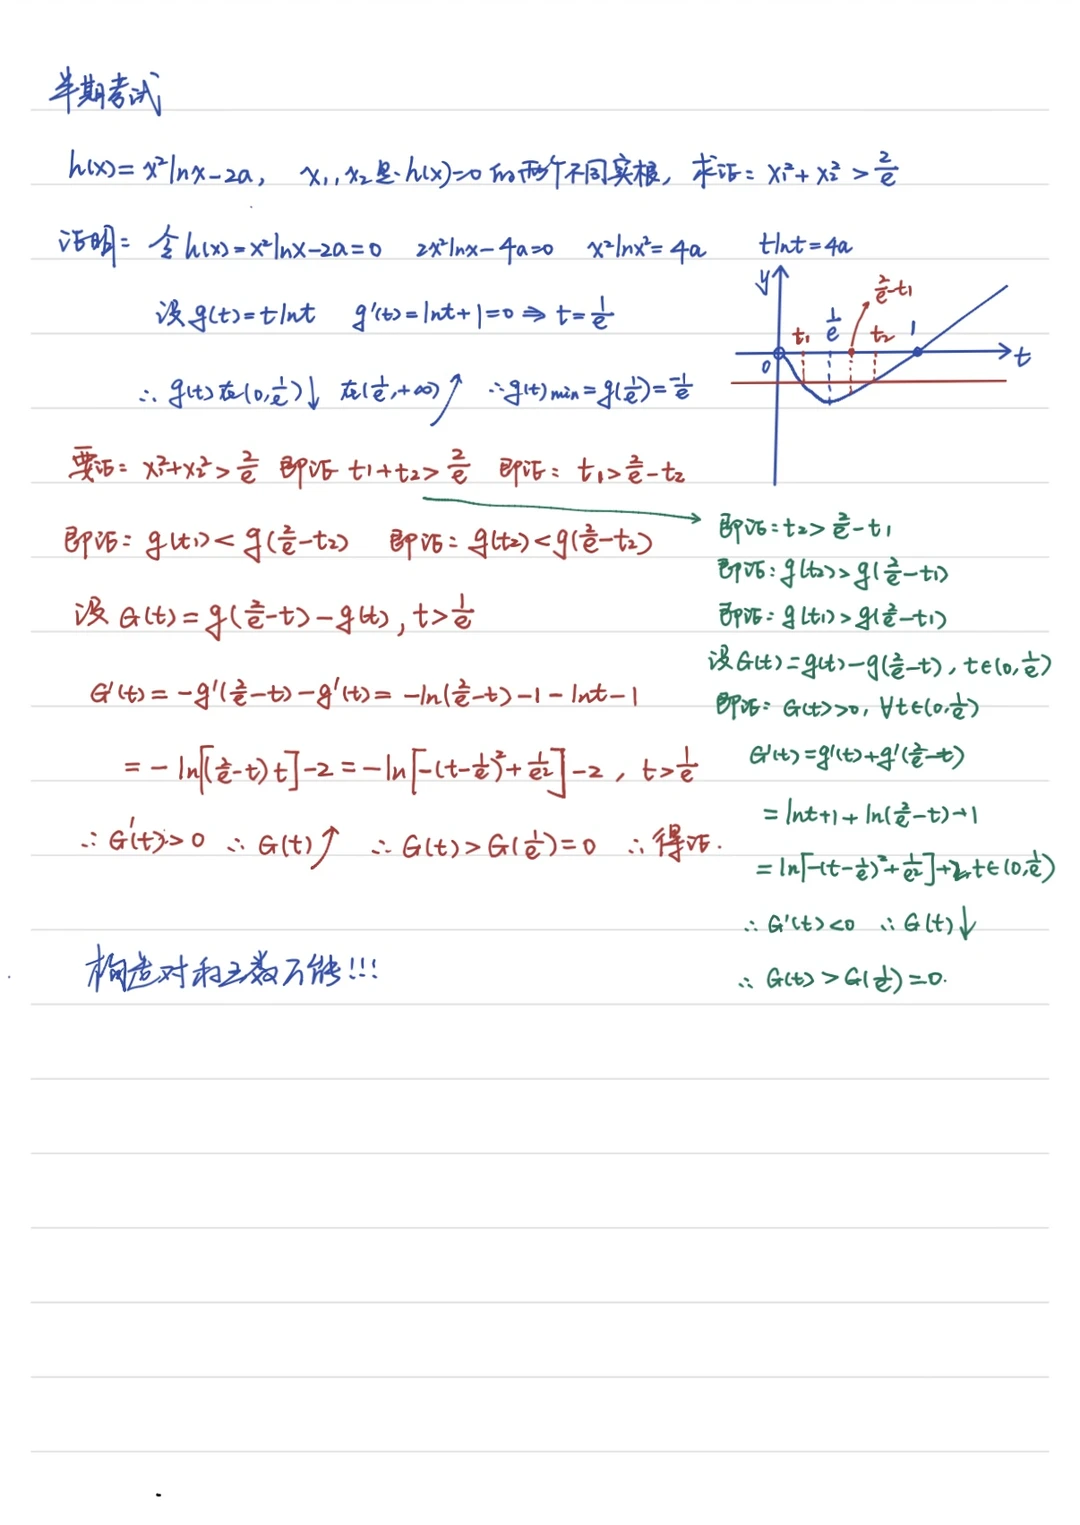 半期考试
h(x)=x²lnx-2a, x₁,x₂是h(x)=0的两个不同实根, 求证: x₁²+x₂²>2/e
证明: 令h(x)=x²lnx-2a=0 2x²lnx-4a=0 x²lnx²=4a tlnt=4a
设g(t)=tlnt g'(t)=lnt+1=0⇒t=1/e
∴g(t)在(0,1/e)↓ 在(1/e,+∞)↗ ∴g(t)min=g(1/e)=-1/e
y
2/e-t₁
t₁ 1/e t₂ 1
0 t
要证: x₁²+x₂²>2/e 即证 t₁+t₂>2/e 即证: t₁>2/e-t₂
即证: g(t₁)<g(2/e-t₂) 即证: g(t₂)<g(2/e-t₂)
设G(t)=g(2/e-t)-g(t), t>1/e
G'(t)=-g'(2/e-t)-g'(t)=-ln(2/e-t)-1-lnt-1
=-ln[(2/e-t)t]-2=-ln[-(t-1/e)²+1/e²]-2, t>1/e
∴G'(t)>0 ∴G(t)↗ ∴G(t)>G(1/e)=0 ∴得证.
即证: t₂>2/e-t₁
即证: g(t₂)>g(2/e-t₁)
即证: g(t₁)>g(2/e-t₁)
设G(t)=g(t)-g(2/e-t), t∈(0,1/e)
即证: G(t)>0, ∀t∈(0,1/e)
G'(t)=g'(t)+g'(2/e-t)
=lnt+1+ln(2/e-t)+1
=ln[-(t-1/e)²+1/e²]+2, t∈(0,1/e)
∴G'(t)<0 ∴G(t)↓
∴G(t)>G(1/e)=0.
构造对称函数万能!!!